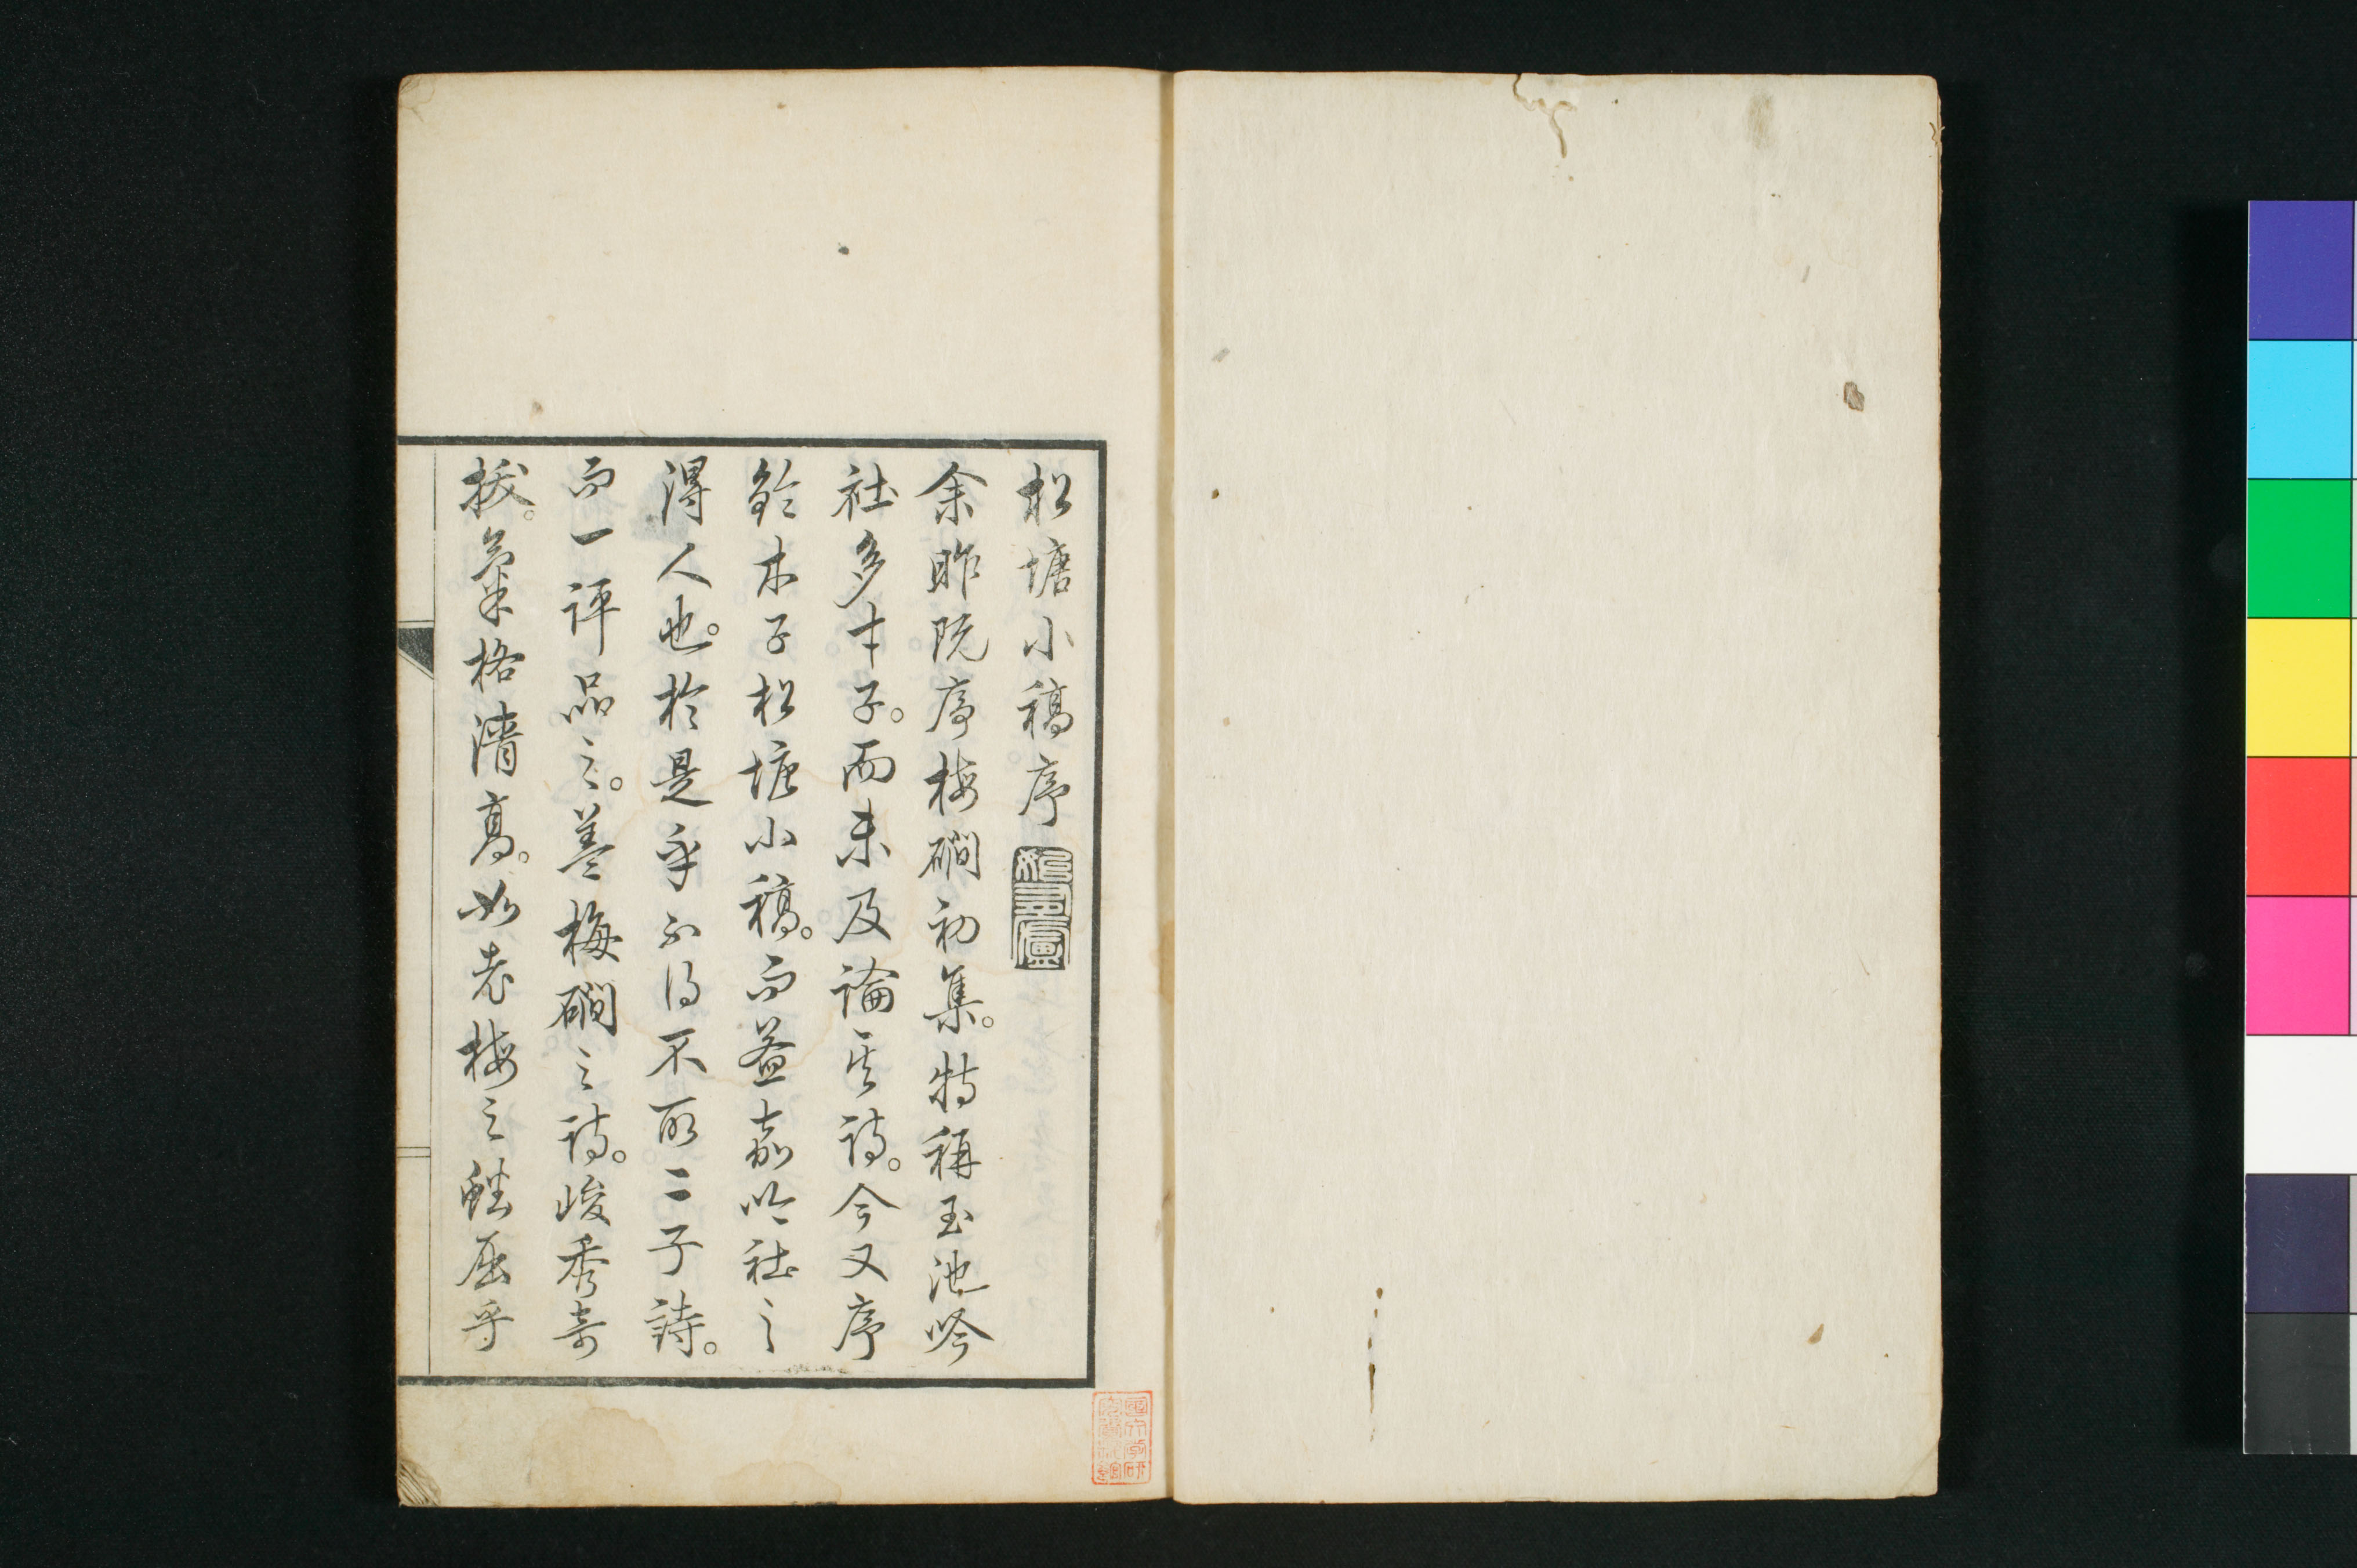 松塘小稿序
余昨既序梅磵初集。特稱玉池吟
社多才子。而未及論其詩。今又序
鈴木子松塘小稿。而益嘉吟社之
得人也。於是乎不得不取二子詩。
而一評品之。蓋梅磵之詩。峻秀奇
拔。氣格清高。如老梅之蟠屈乎